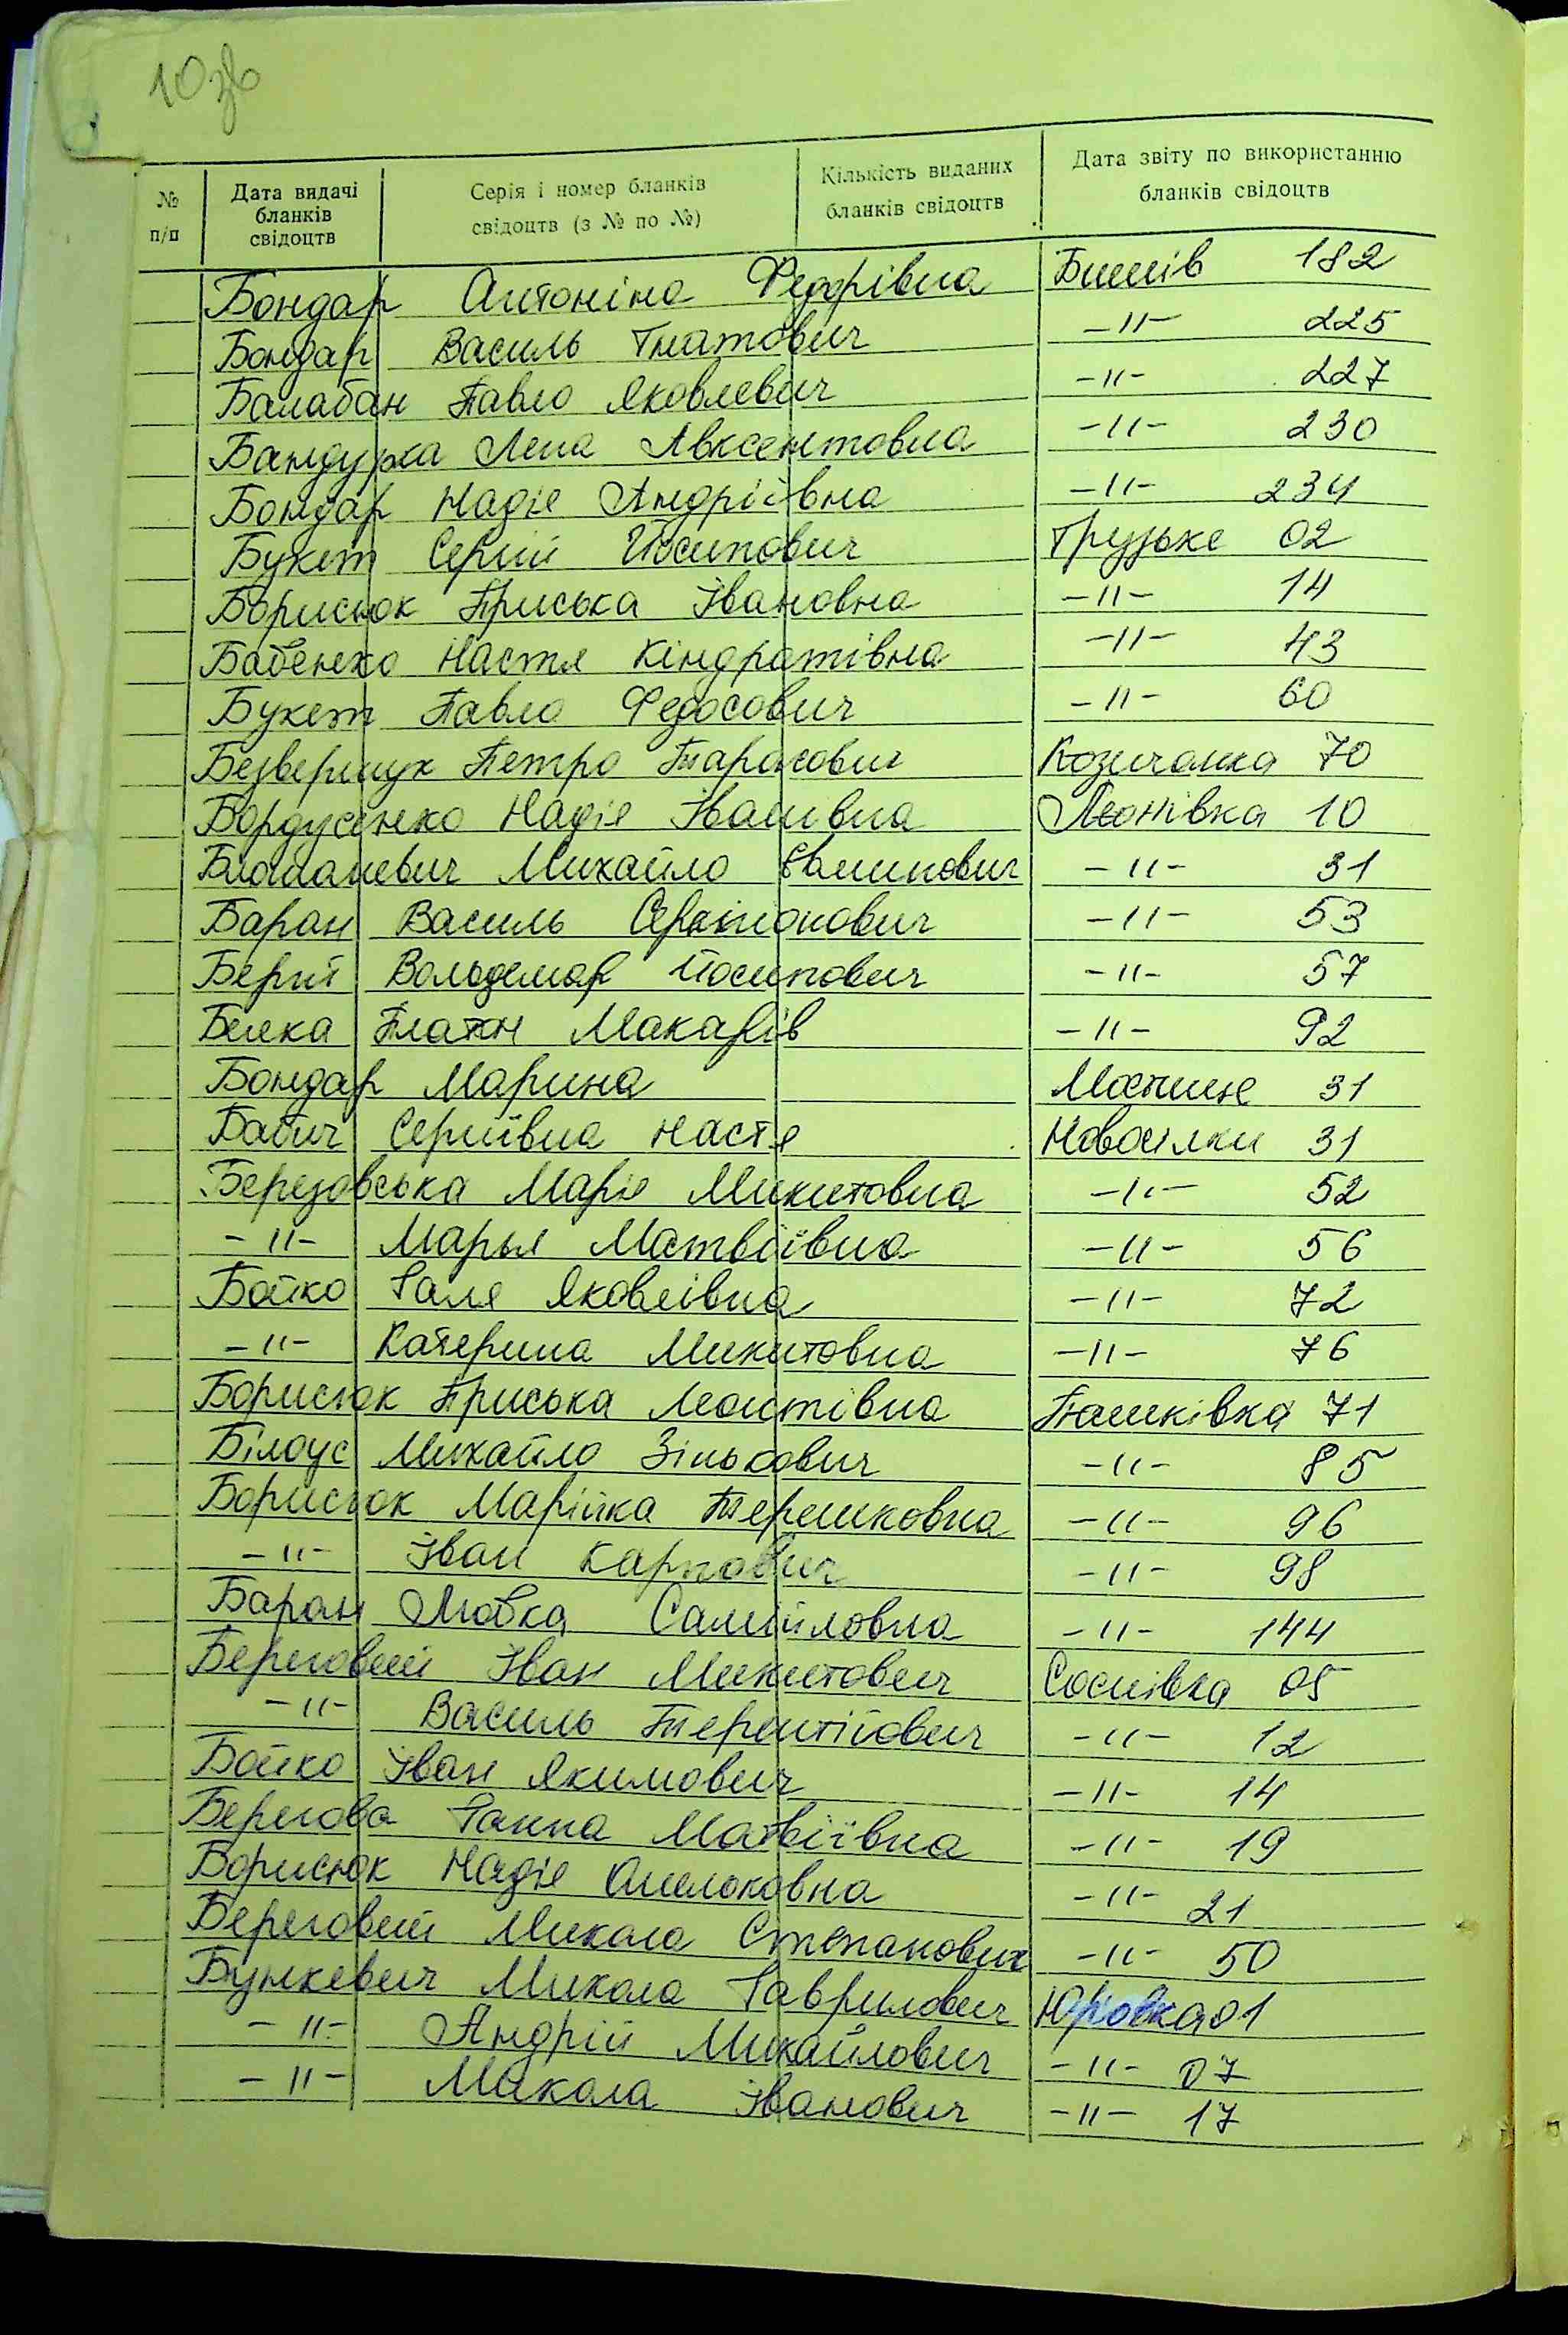 10зв
№ п/п Дата видачі бланків свідоцтв Серія і номер бланків свідоцтв (з № по №) Кількість виданих бланків свідоцтв Дата звіту по використанню бланків свідоцтв
Бондар Антоніна Федорівна Бишів 182
Бондар Василь Гнатович -//- 225
Балабан Павло Яковлевич -//- 227
Бандурка Лена Авксентовна -//- 230
Бондар Надія Андріївна -//- 234
Букет Сергій Йосипович Грузьке 02
Борисюк Приська Івановна -//- 14
Бабенко Настя Кіндратівна -//- 43
Букет Павло Федосович -//- 60
Безверщук Петро Тарасович Козичанка 70
Бордусенко Надія Іванівна Леонівка 10
Михайло -//- 31
Баран Василь -//- 53
Вольдемар Йосипович -//- 57
Платон Макарів -//- 92
Бондар Марина Мостище 31
Бабич Сергіївна Настя Новосілки 31
Березовська Марія Микитовна -//- 52
-//- Марья Матвіївна -//- 56
Бойко Галя Яковлівна -//- 72
-//- Катерина Микитовна -//- 76
Борисюк Приська Леонтівна Пашківка 71
Білоус Михайло Зінькович -//- 85
Борисюк Марійка Терешковна -//- 96
-//- Іван Карпович -//- 98
Баран Любка Самійловна -//- 144
Береговий Іван Микитович Соснівка 05
-//- Василь Терентійович -//- 12
Бойко Іван Якимович -//- 14
Берегова Ганна Матвіївна -//- 19
Борисюк Надія Омельковна -//- 21
Береговий Микола Степанович -//- 50
Бункевич Микола Гаврилович Юровка 01
-//- Андрій Михайлович -//- 07
-//- Микола Іванович -//- 17